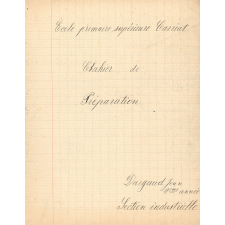 Ecole primaire supérieure Carriat
Cahier de
Préparation
Dargaud Jean
année
Section industrielle